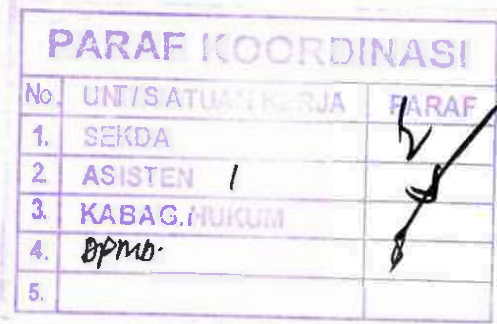 PARAF KOORDINASI
No. UNIT/SATUAN KERJA PARAF
1. SEKDA
2. ASISTEN 1
3. KABAG. HUKUM
4. DPMD.
5.